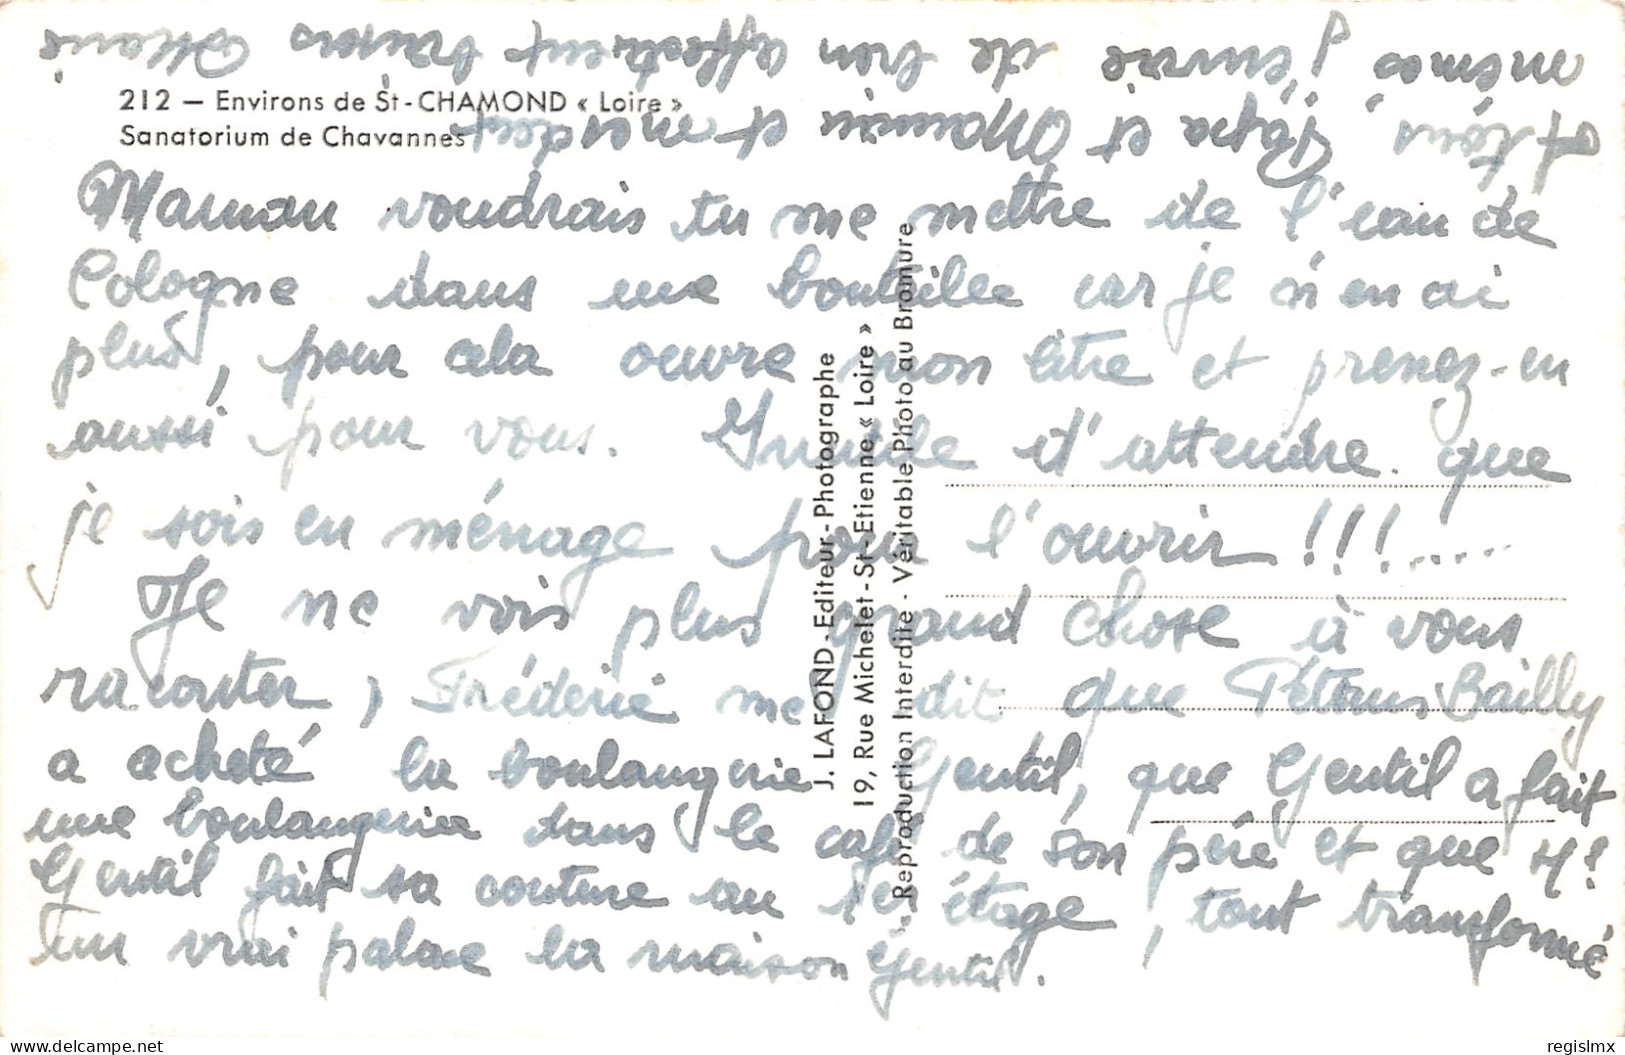 212 — Environs de St-CHAMOND « Loire »
Sanatorium de Chavannes
Maman voudrais tu me mettre de l'eau de
Cologne dans une bouteille car je n'en ai
plus, pour cela ouvre mon litre et prenez-en
aussi pour vous. Inutile d'attendre que
je sois en ménage pour l'ouvrir !!!.....
Je ne vois plus grand chose à vous
raconter, Fréderic me dit que Pétrus Bailly
a acheté la boulangerie Gentil, que Gentil a fait
une boulangerie dans le café de son père et que
Gentil fait sa couture au 1er étage, tout transformé
un vrai palace la maison Gentil.
A tous, Papa et Maman et mes deux
mémés j'envoie de bon affectueux baisers Marie
J. LAFOND - Editeur - Photographe
19, Rue Michelet - St-Etienne « Loire »
Reproduction Interdite - Véritable Photo au Bromure
delcampe.net
regislmx